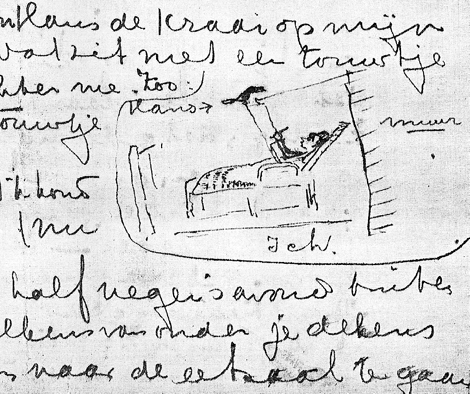 n Hans de Kraai op mijn
zit met een touwtje
me. Zoo:
Hans →
touwtje
muur
'k houd
nu
Ich.
half negen savond
van onder je dekens
naar de eetzaal te gaan